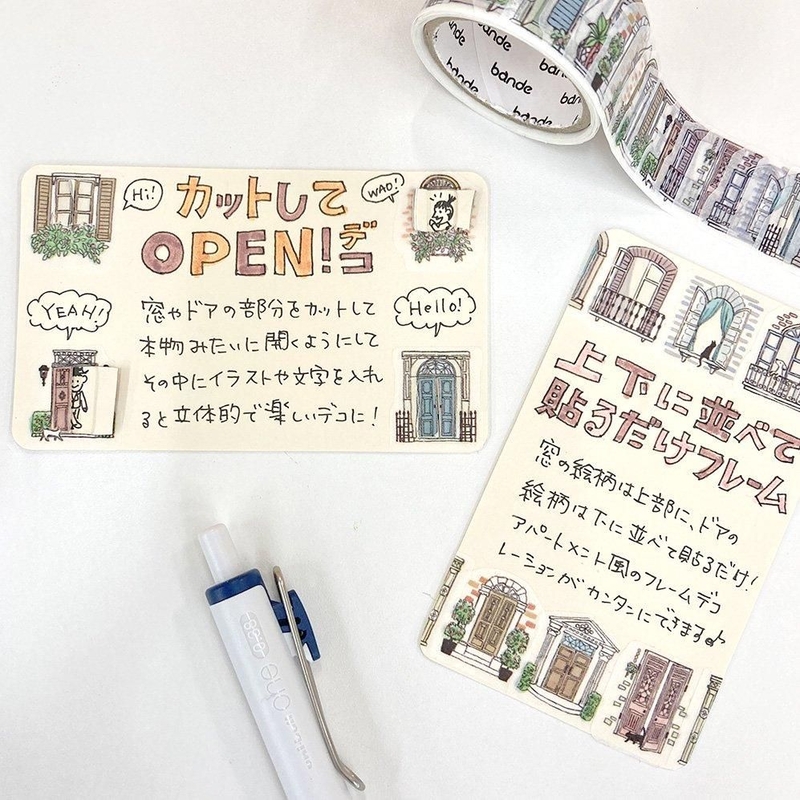 bande
bande
bande
bande
bande
Hi!
カットして
WAO!
OPEN!デコ
YEAH!
Hello!
窓やドアの部分をカットして
本物みたいに開くようにして
その中にイラストや文字を入れ
ると立体的で楽しいデコに!
上下に並べて
貼るだけフレーム
窓の絵柄は上部に、ドアの
絵柄は下に並べて貼るだけ!
アパートメント風のフレームデコ
レーションがカンタンにできます♪
uni-ball One